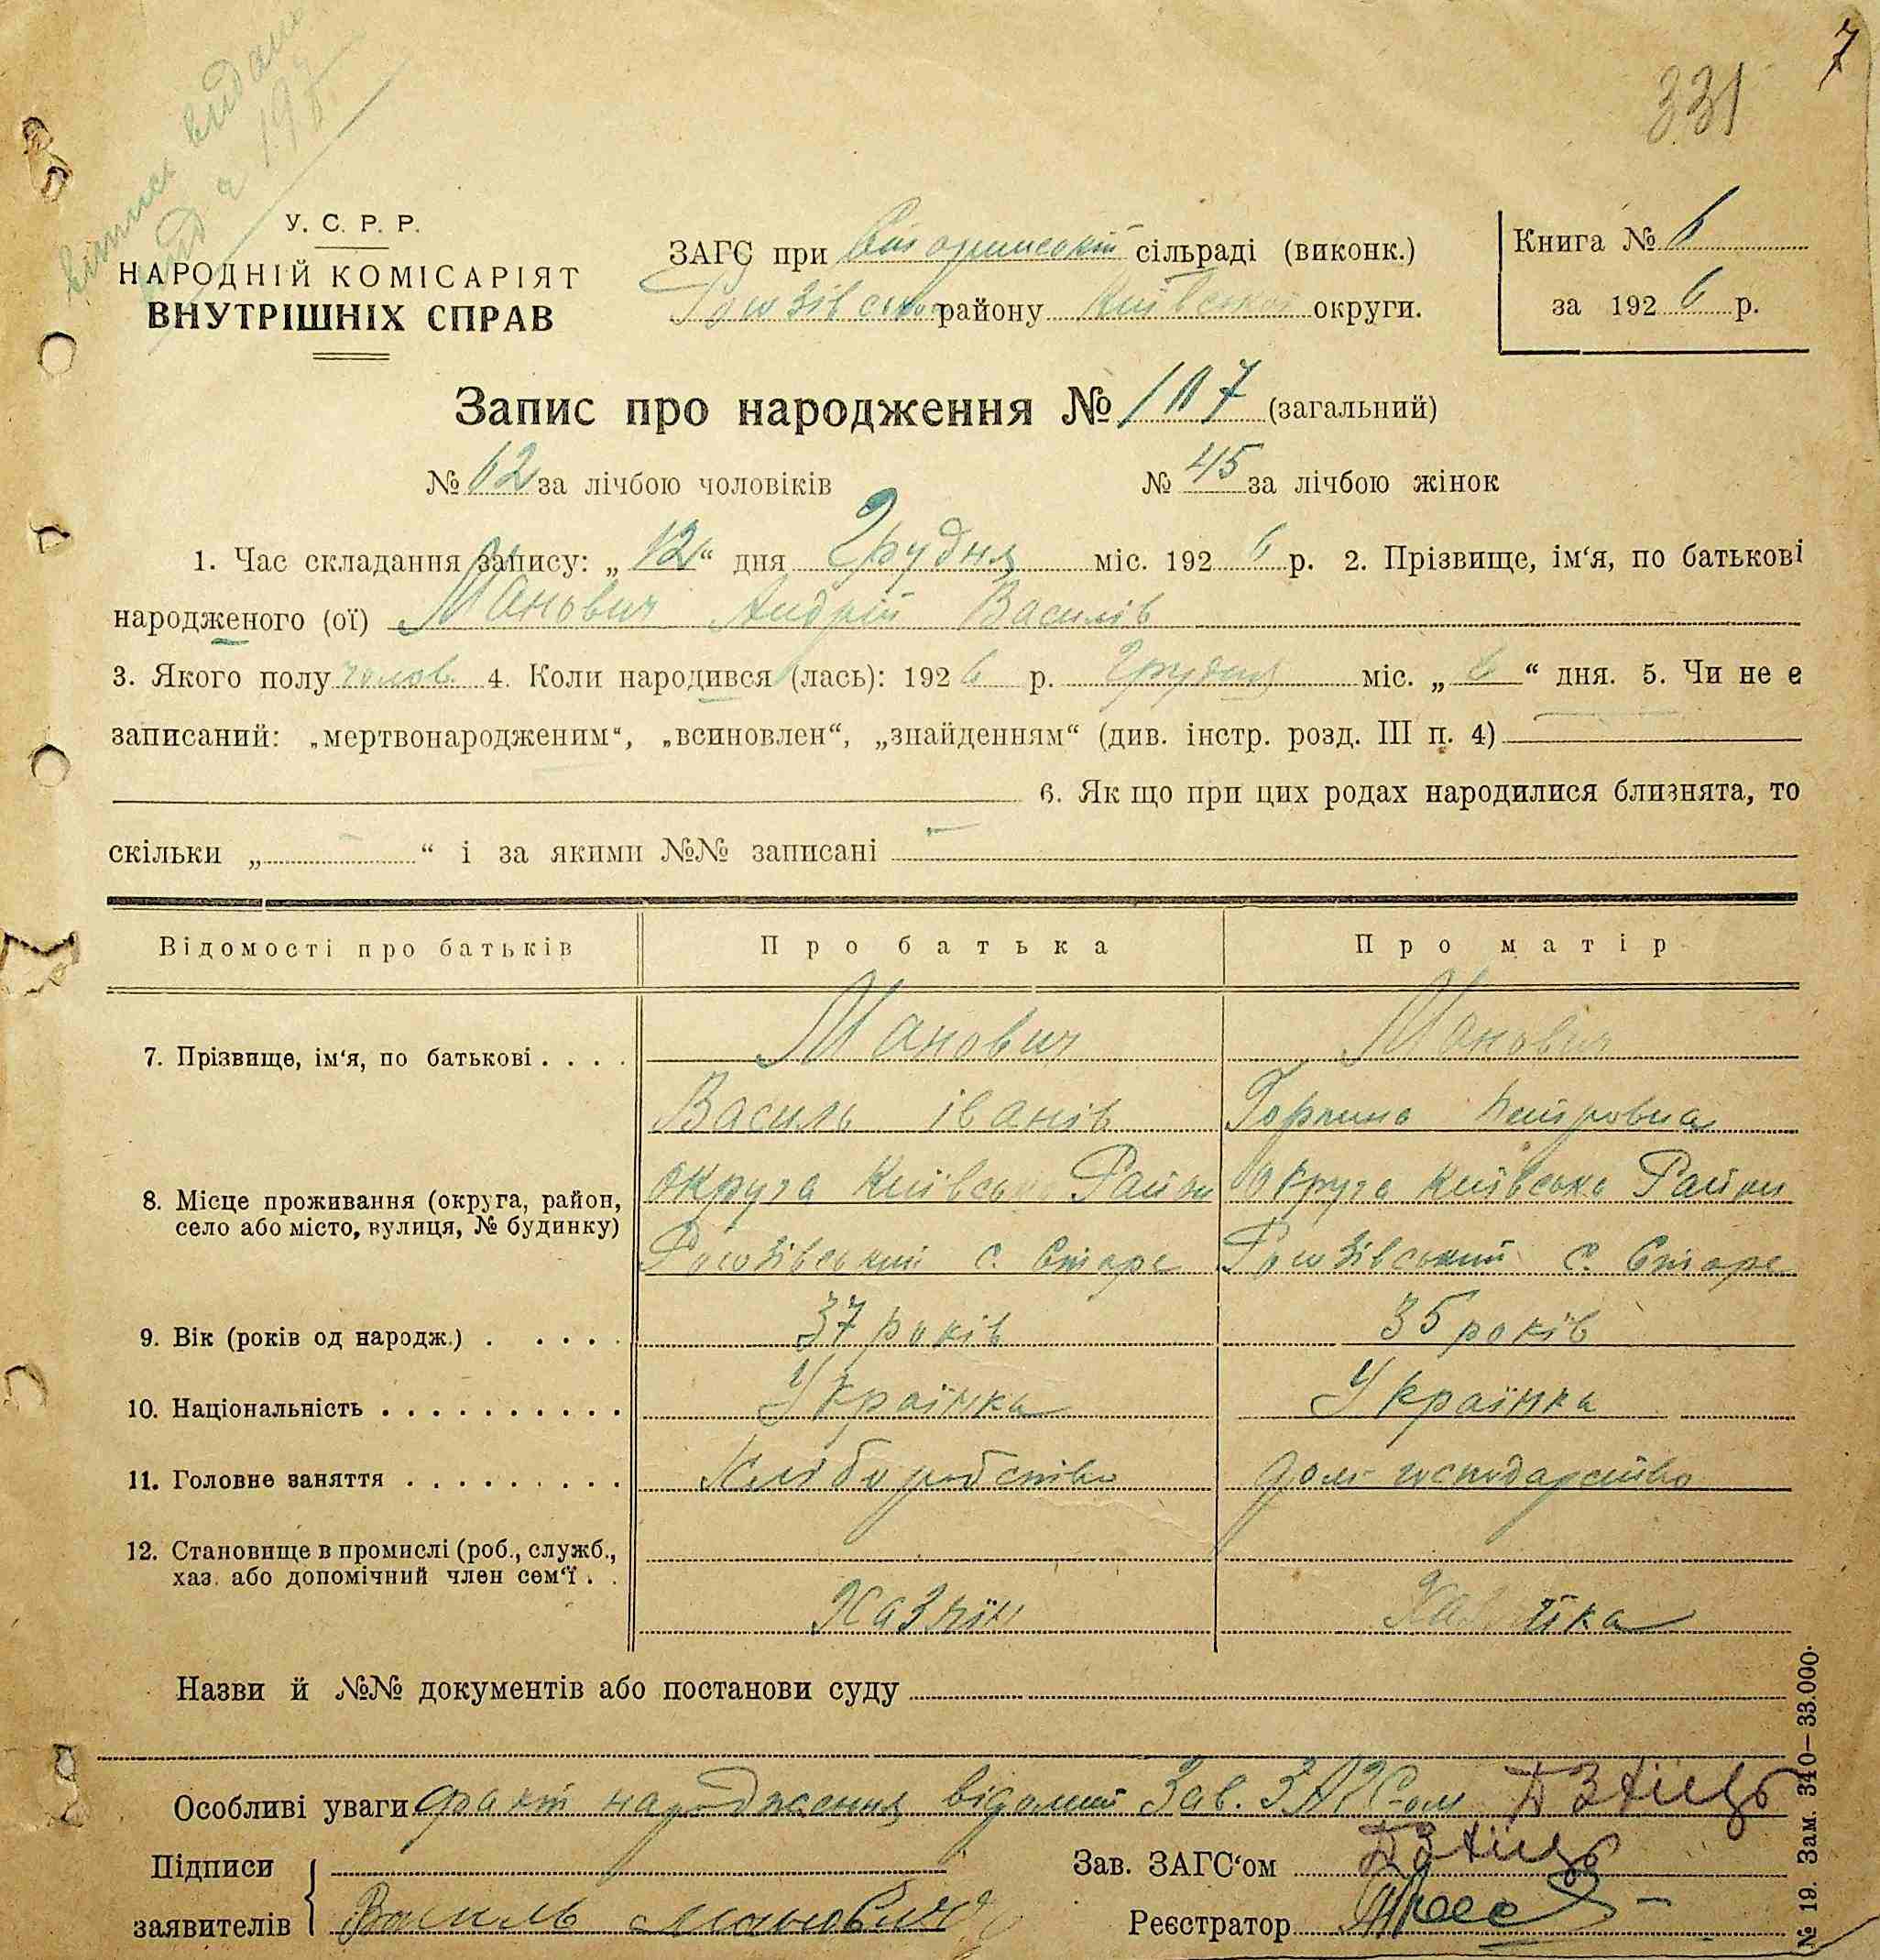 7
331
випис видано
У. С. Р. Р.
НАРОДНІЙ КОМІСАРІЯТ
ВНУТРІШНІХ СПРАВ
ЗАГС при сільраді (виконк.)
району Київської округи.
Книга № 6
за 1926 р.
Запис про народження № 107 (загальний)
№ 62 за лічбою чоловіків № 45 за лічбою жінок
1. Час складання запису: „12“ дня Грудня міс. 1926 р. 2. Прізвище, ім‘я, по батькові
народженого (ої) Манович Андрій Василів
3. Якого полу чолов. 4. Коли народився (лась): 1926 р. Грудня міс. „6“ дня. 5. Чи не е
записаний: „мертвонародженим“, „всиновлен“, „знайденням“ (див. інстр. розд. III п. 4)
6. Як що при цих родах народилися близнята, то
скільки „ “ і за якими №№ записані
Відомості про батьків Про батька Про матір
7. Прізвище, ім‘я, по батькові . . . . Манович Манович
Василь іванів Горпина
8. Місце проживання (округа, район, округа Київська Район округа Київська Район
село або місто, вулиця, № будинку) с. Старе с. Старе
9. Вік (років од народж.) . . . . . 37 років 35 років
10. Національність . . . . . . . . . . Українка Українка
11. Головне заняття . . . . . . . . . Хліборобство дом господарство
12. Становище в промислі (роб., служб.,
хаз. або допомічний член сем‘ї . .
Хазяїн Хазяїка
Назви й №№ документів або постанови суду
Особливі уваги факт народження відомий Зав. ЗАГС-ом
Підписи
заявителів Василь Манович
Зав. ЗАГС‘ом
Реєстратор
№ 19. Зам. 340—33.000.